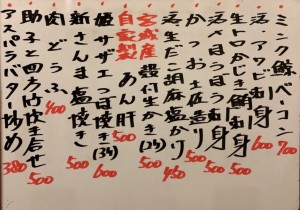 ミンク鯨ベーコン 700
活・アワビ刺身 600
生トロかじき鮪刺身 500
活〆ほうぼう刺身 500
かつお土佐造り 500
活生だこ胡麻塩かけ 450
宮城産 殻付生かき(2ケ) 500
自家製 あん肝 500
姫サザエつぼ焼き(3ケ) 500
新さんま塩焼き 500
肉どうふ 400
助子と四方竹炊き合せ 500
アスパラバター炒め 380